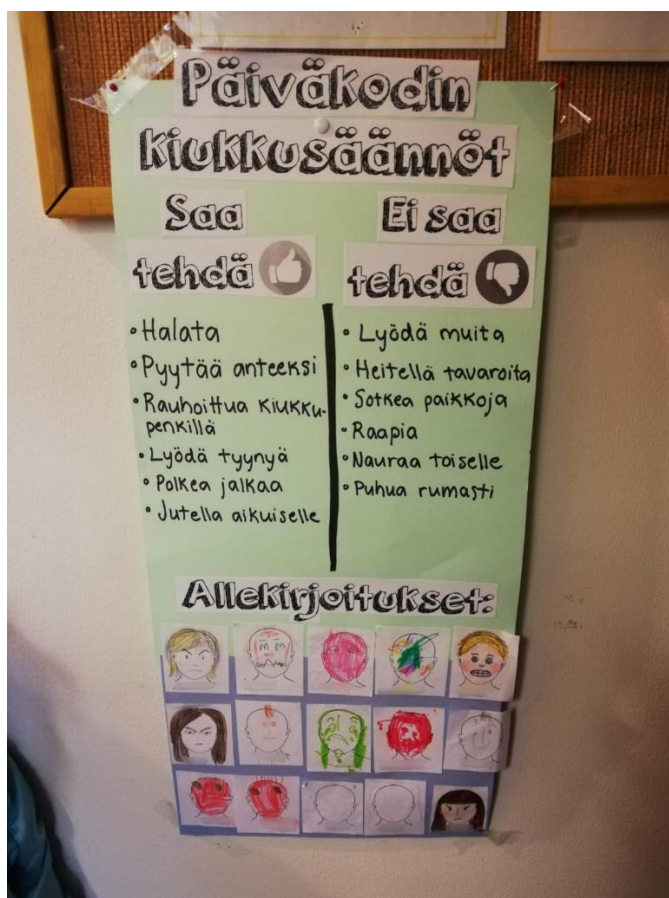 Päiväkodin
kiukkusäännöt
Saa
tehdä
• Halata
• Pyytää anteeksi
• Rauhoittua kiukku-
penkillä
• Lyödä tyynyä
• Polkea jalkaa
• Jutella aikuiselle
Ei saa
tehdä
• Lyödä muita
• Heitellä tavaroita
• Sotkea paikkoja
• Raapia
• Nauraa toiselle
• Puhua rumasti
Allekirjoitukset: